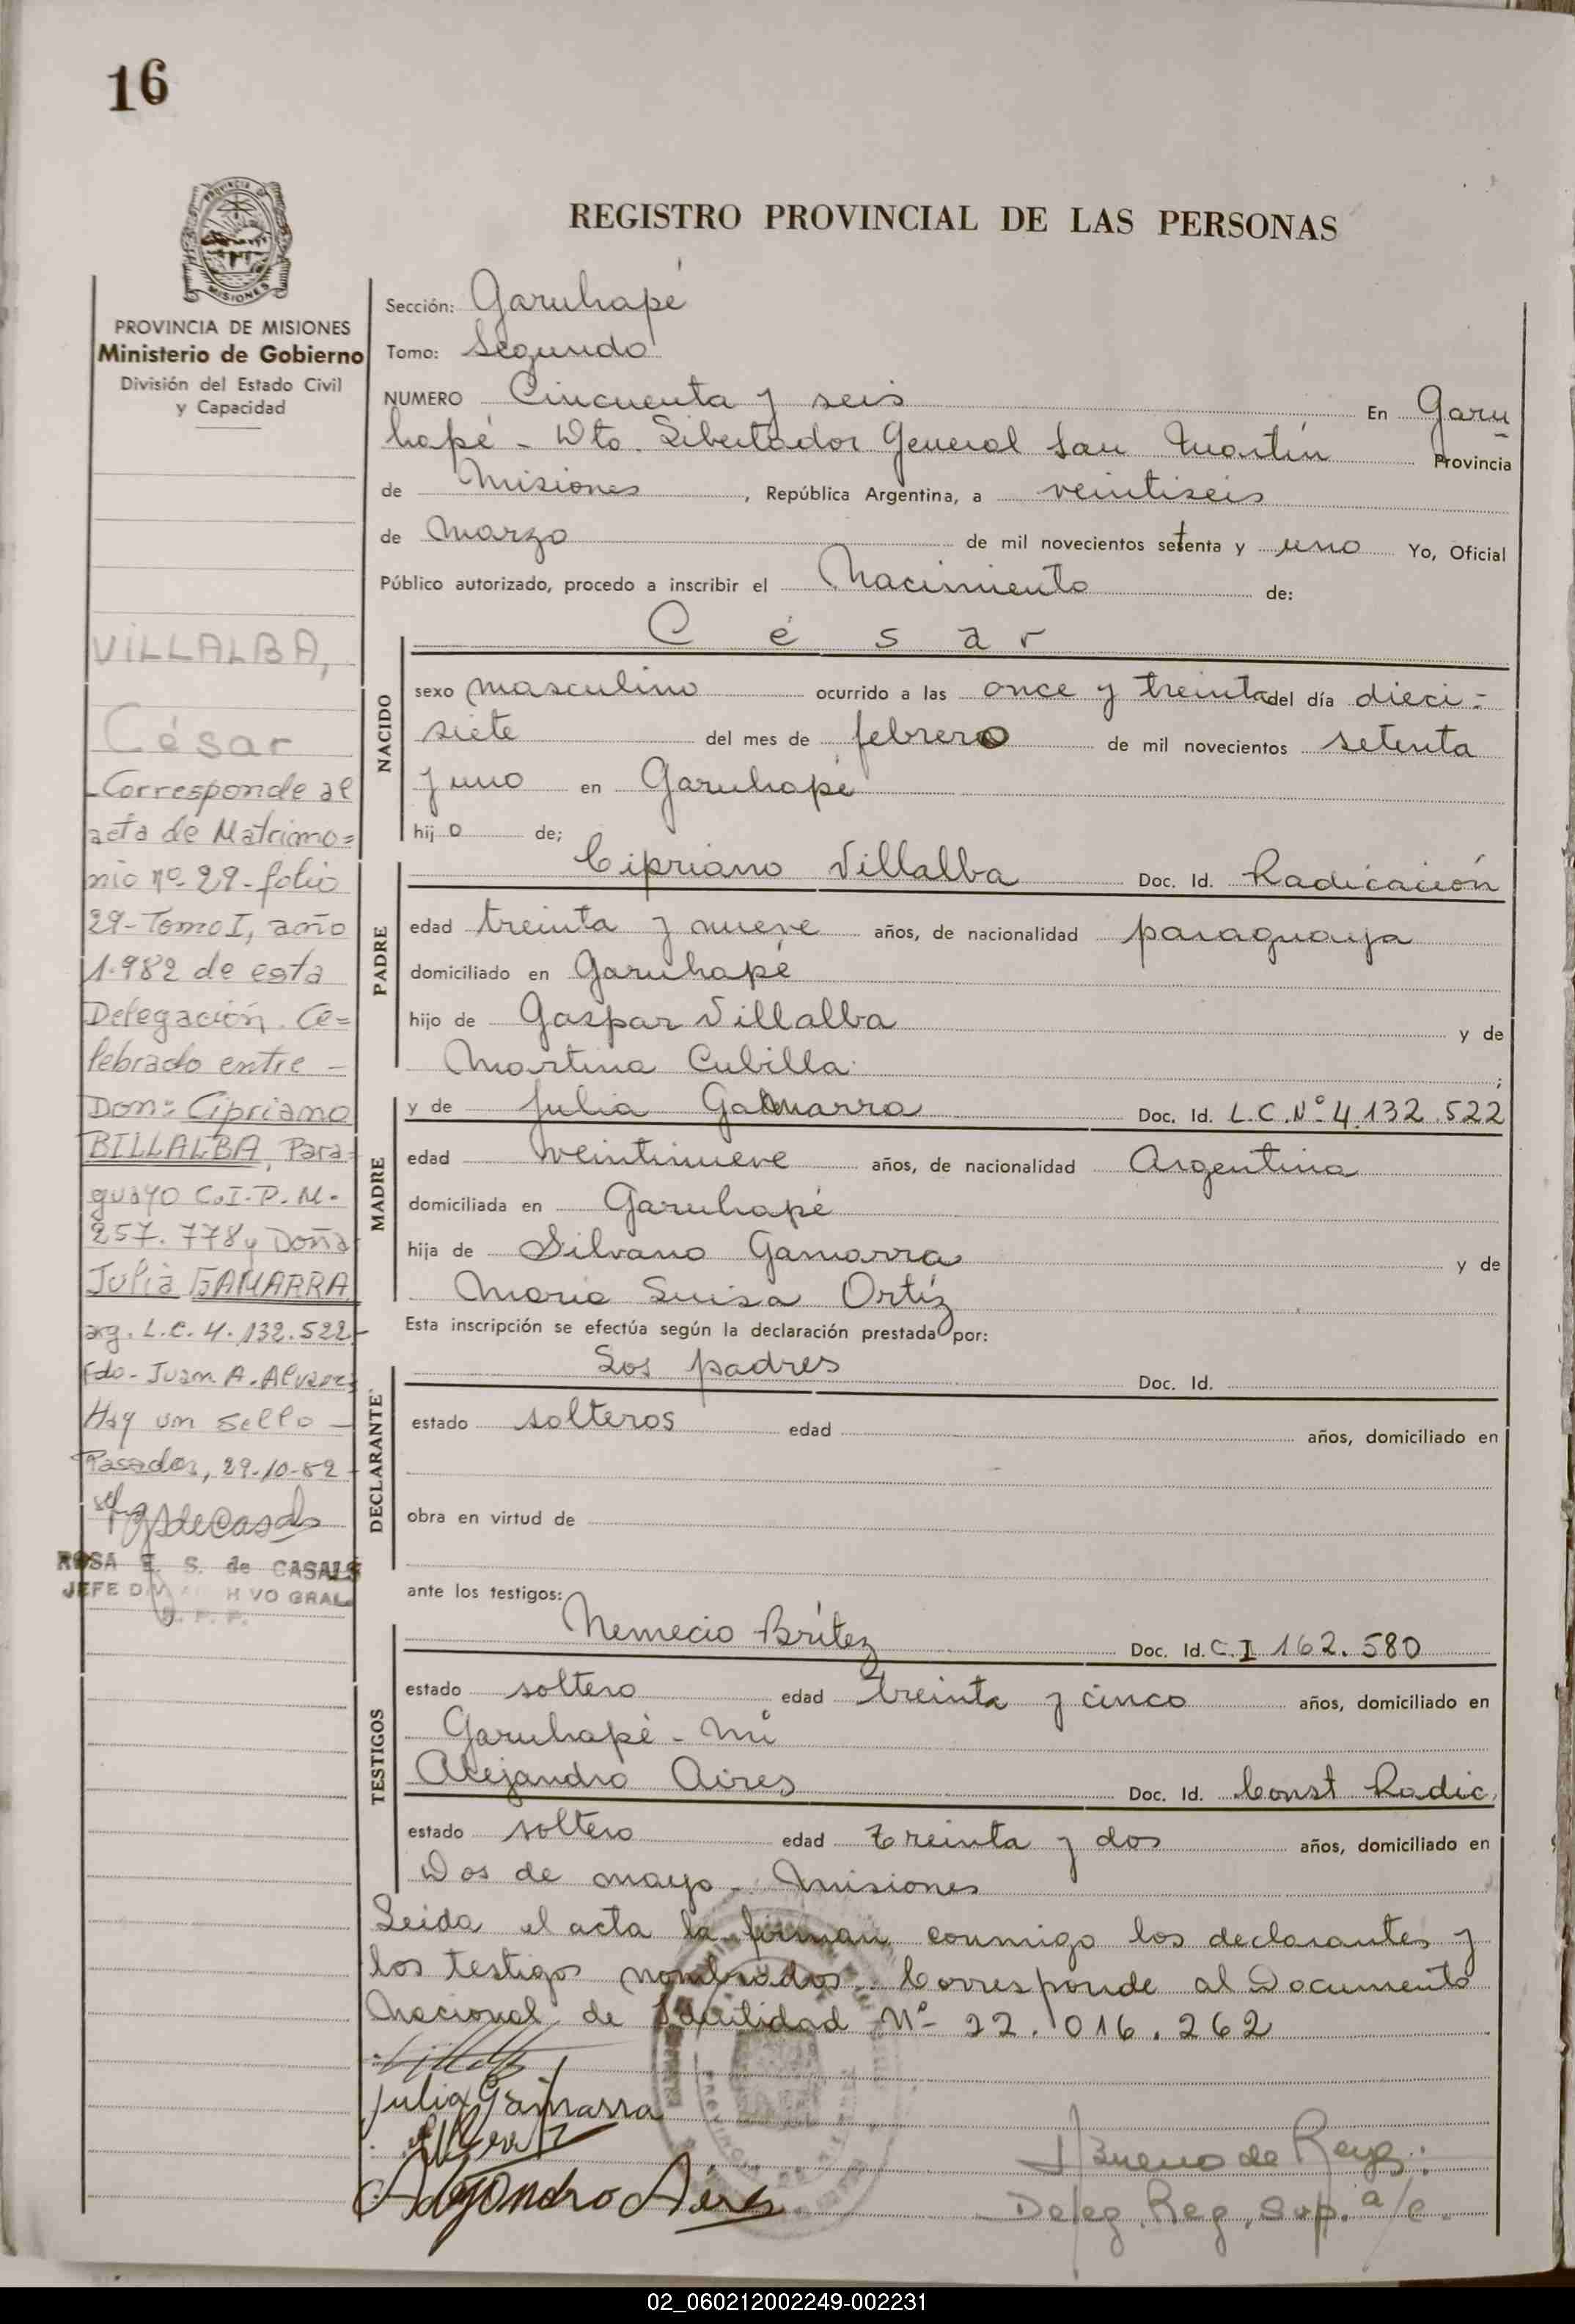 16
PROVINCIA DE
MISIONES
REGISTRO PROVINCIAL DE LAS PERSONAS
PROVINCIA DE MISIONES
Ministerio de Gobierno
División del Estado Civil
y Capacidad
VILLALBA,
César
-Corresponde al
acta de Matrimo=
nio nº 29-folio
29-Tomo I, año
1.982 de esta
Delegación. Ce=
lebrado entre -
Don: Cipriano
BILLALBA, Para=
guayo C.I.P.M.
257.778 y Doña
Julia GAMARRA
arg. L.C. 4.132.522-
Fdo- Juan A. Alvarez
Hay un sello -
Posadas, 29-10-82-
ROSA E. S. de CASALS
JEFE DIV HIVO GRAL
Sección: Garuhapé
Tomo: Segundo
NUMERO Cincuenta y seis En Garu
hapé - Dto. Libertador General San Martín Provincia
de Misiones, República Argentina, a veintiseis
de Marzo de mil novecientos setenta y uno Yo, Oficial
Público autorizado, procedo a inscribir el Nacimiento de:
NACIDO
César
sexo masculino ocurrido a las once y treinta del día dieci=
siete del mes de febrero de mil novecientos setenta
y uno en Garuhapé
hijo de;
PADRE
Cipriano Villalba Doc. Id. Radicación
edad treinta y nueve años, de nacionalidad paraguaya
domiciliado en Garuhapé
hijo de Gaspar Villalba y de
Martina Cubilla ;
MADRE
y de Julia Gamarra Doc. Id. L.C.Nº 4.132.522
edad veintinueve años, de nacionalidad Argentina
domiciliada en Garuhapé
hija de Silvano Gamarra y de
María Luisa Ortíz
Esta inscripción se efectúa según la declaración prestada por:
DECLARANTE
Los padres Doc. Id.
estado solteros edad años, domiciliado en
obra en virtud de
ante los testigos:
TESTIGOS
Nemecio Brítez Doc. Id. C.I 162.580
estado soltero edad treinta y cinco años, domiciliado en
Garuhapé - Mi
Alejandro Aires Doc. Id. Const Radic.
estado soltero edad treinta y dos años, domiciliado en
Dos de mayo - Misiones
Leida el acta la firman conmigo los declarantes y
los testigos nombrados. Corresponde al Documento
Nacional de Identidad Nº 22.016.262
Julia Gamarra
Alejandro Aires
Bueno de Reyes
Deleg. Reg. Sup. a/c.
02_060212002249-002231